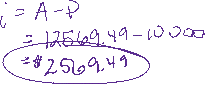 i = A-P
= 12569.49-10000
=$2569.49